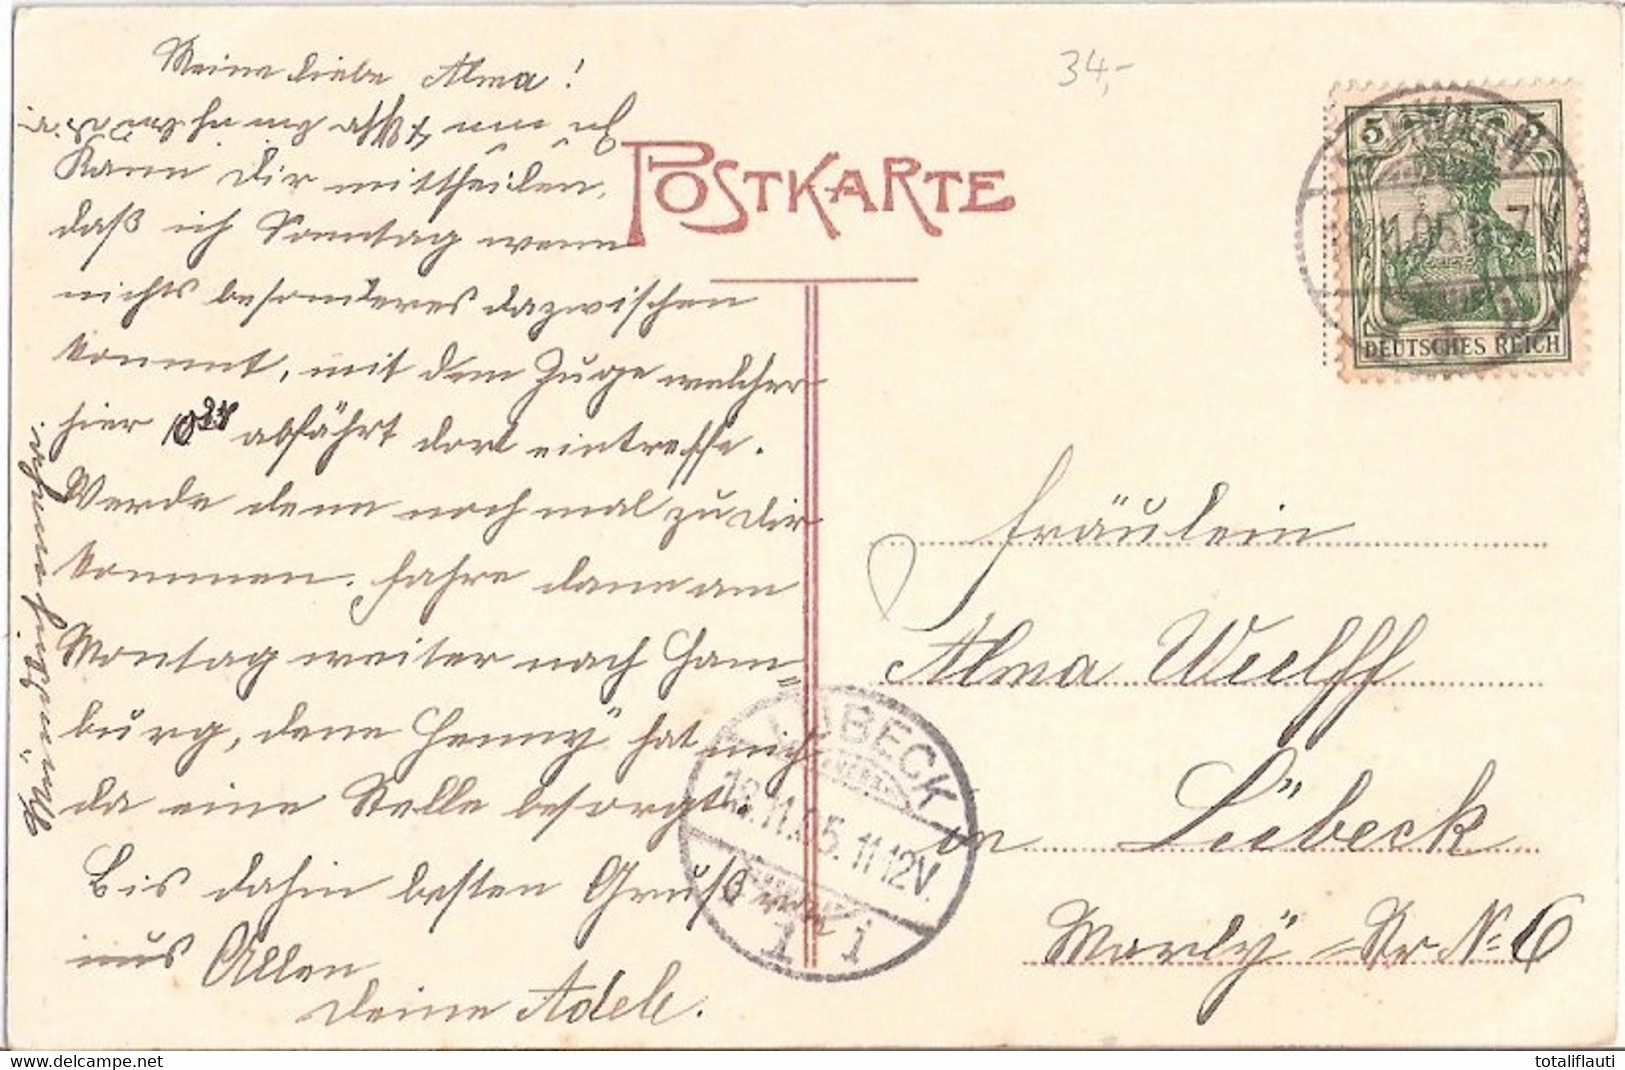 34,-
Meine liebe Alma!
Kann Dir mittheilen,
daß ich Sonntag wenn
nichts besonderes dazwischen
kommt, mit dem Zuge welcher
hier abfährt dort eintreffe.
Werde denn noch mal zu Dir
kommen. Fahre dann am
Montag weiter nach Ham-
burg, denn Henny hat mich
da eine Stelle besorgt.
Bis dahin besten Gruß von
uns Allen
Deine Adele.
POSTKARTE
5 5
DEUTSCHES REICH
LÜBECK
11 12V.
1 i
Fräulein
Alma Wulff
in Lübeck
Marly Str No 6
delcampe.net
totaliflauti